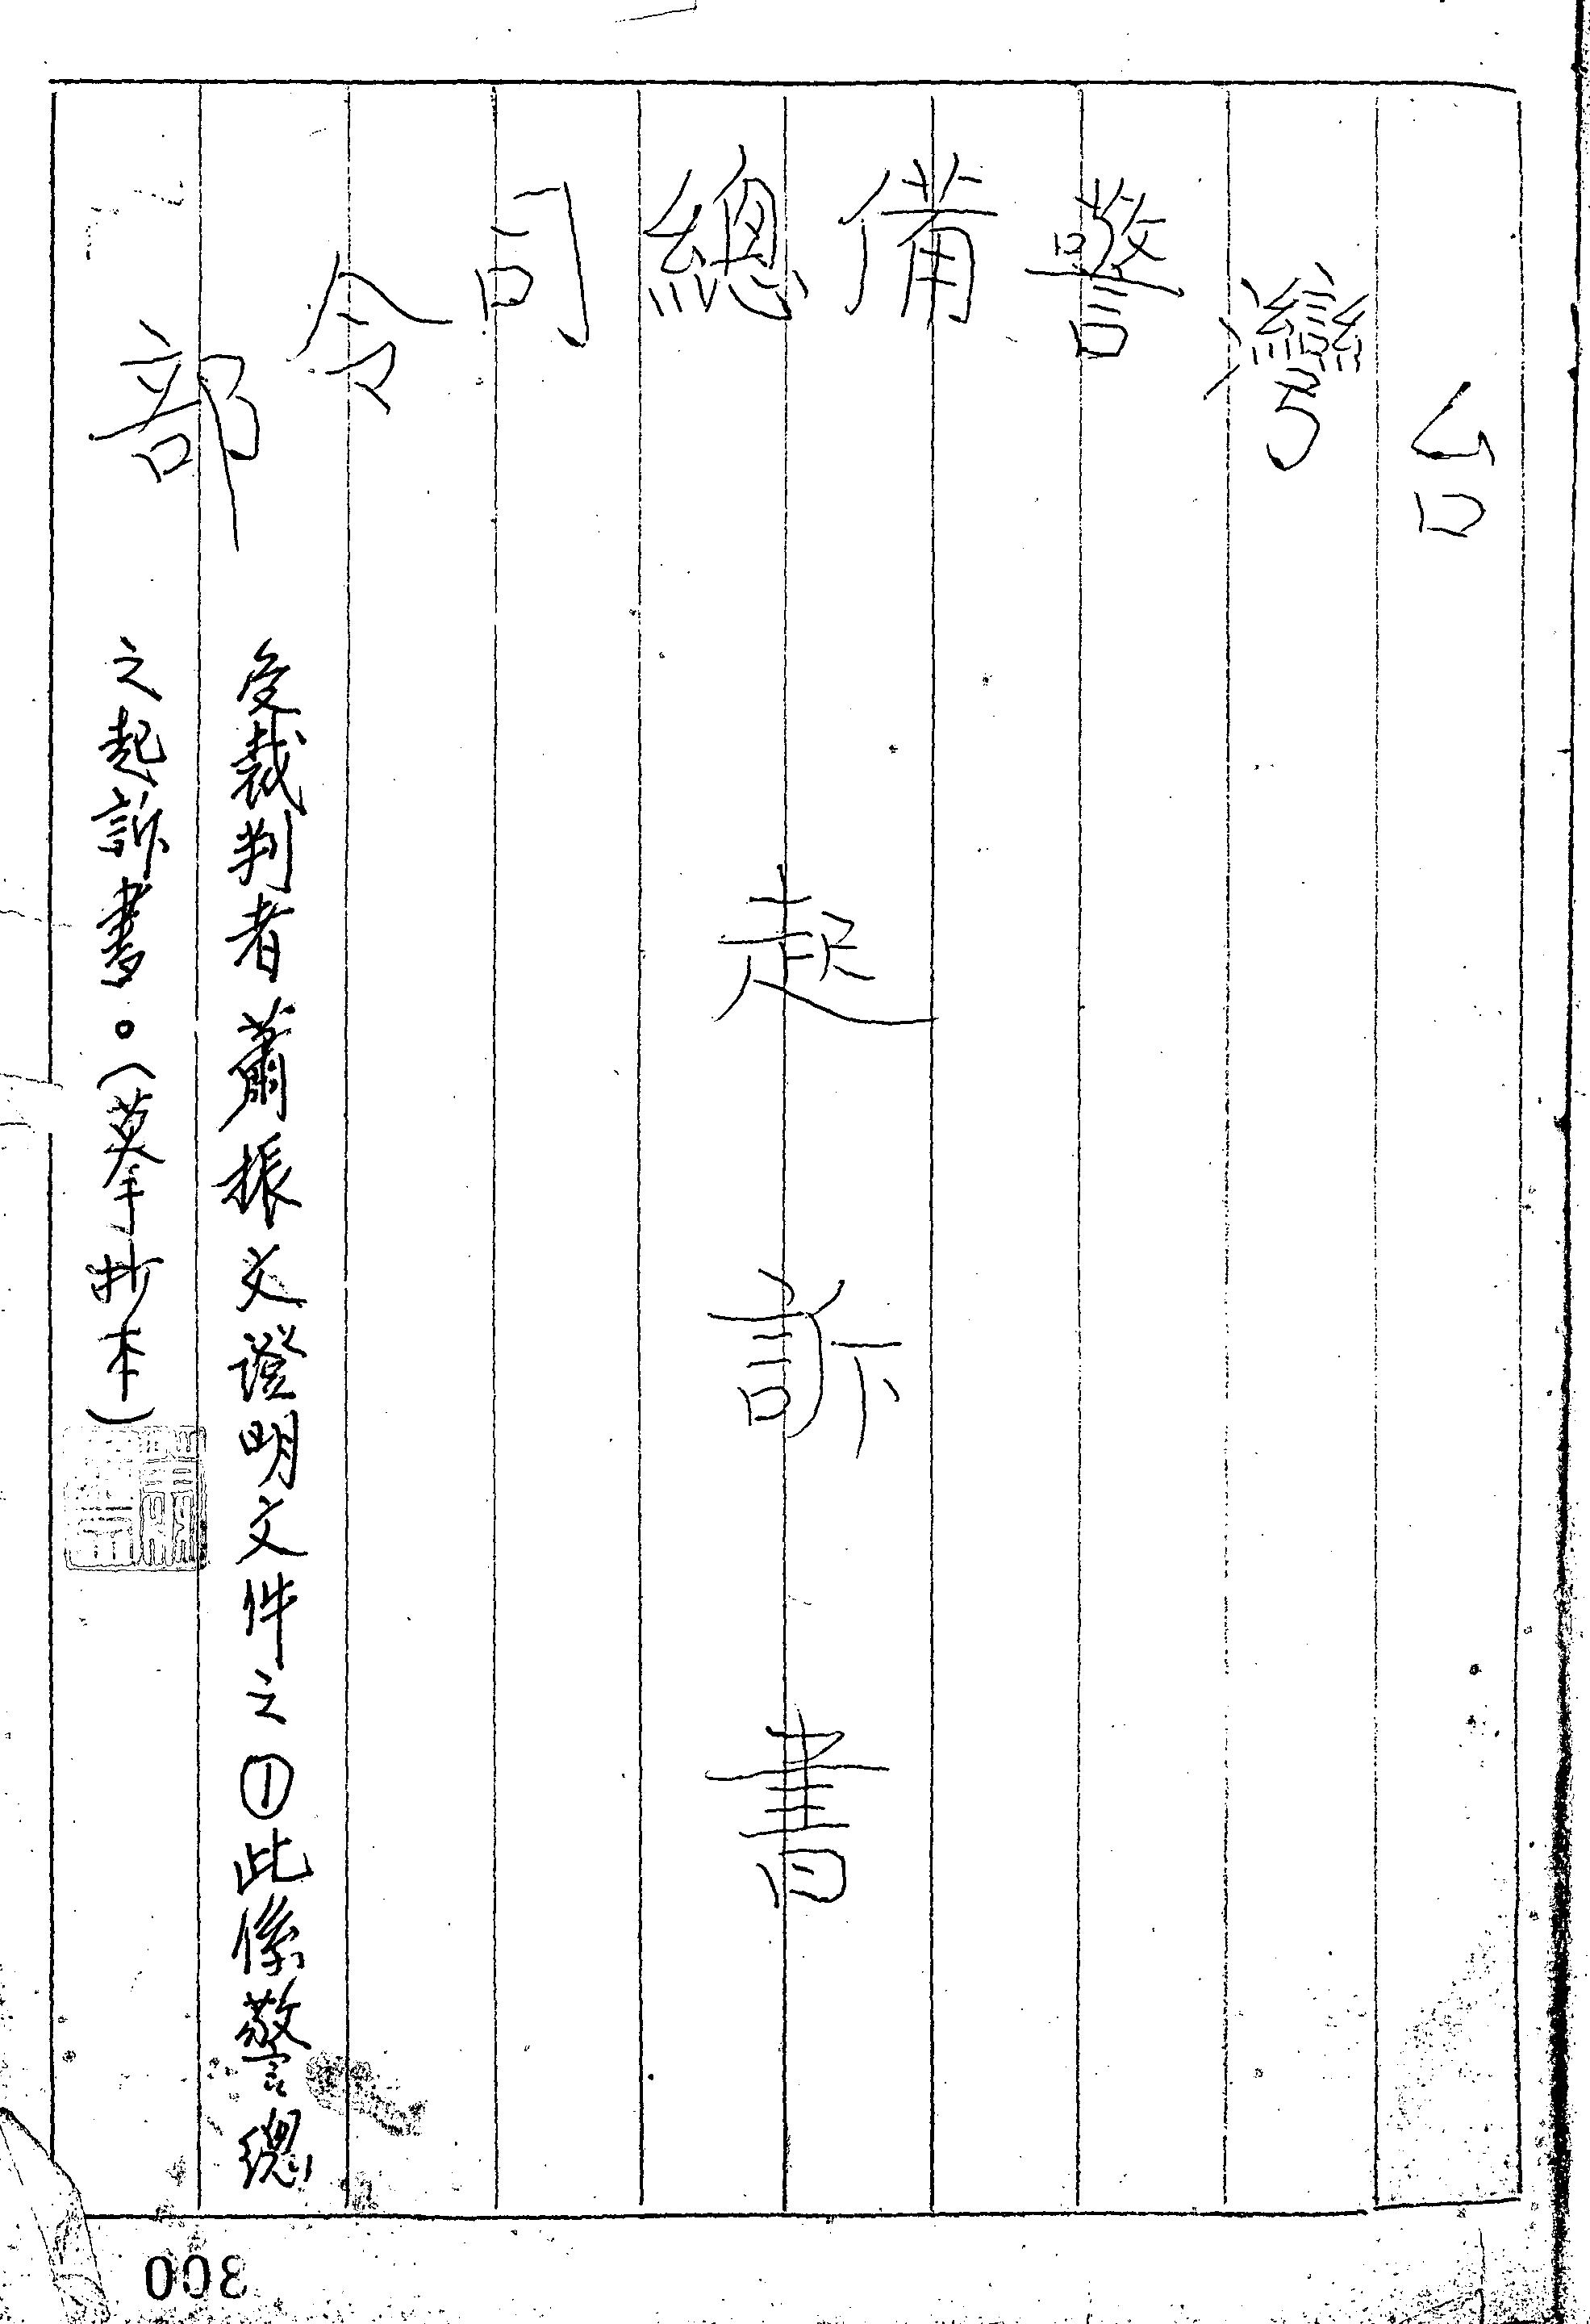 台灣警備總司令部
起訴書
受裁判者蕭振文證明文件之①此係警總
之起訴書。(摹抄本)
300